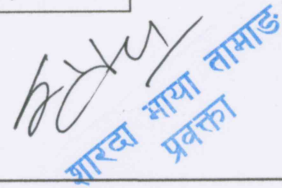 शारदा माया तामाङ
प्रवक्ता